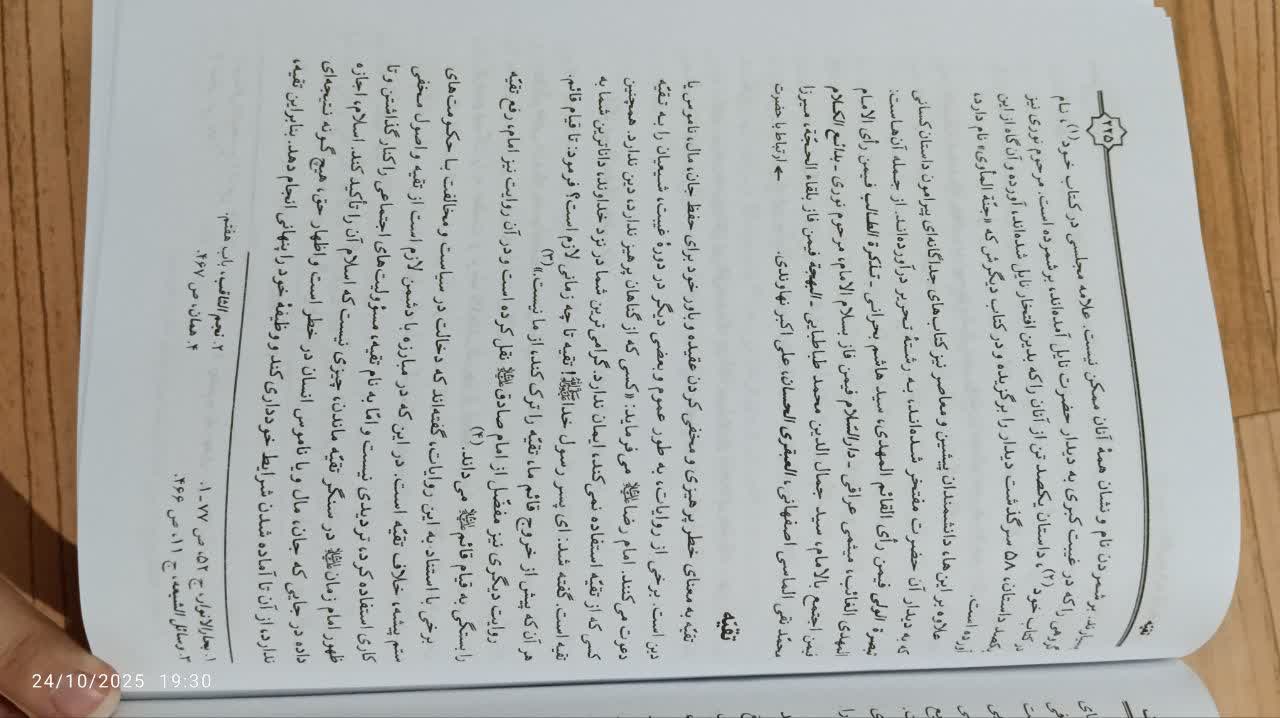 ۲۲۵
تقیه
بیارند. برشمردن نام و نشان همهٔ آنان ممکن نیست. علامه مجلسی در کتاب خود(۱)، نام
گروهی را که در غیبت کبری به دیدار حضرت نایل آمده‌اند، برشمرده است. مرحوم نوری نیز
در کتاب خود(۲)، داستان یکصد تن از آنان را که بدین افتخار نایل شده‌اند، آورده و آن گاه از این
یکصد داستان، ۵۸ سرگذشت دیدار را برگزیده و در کتاب دیگرش که «جنّة المأوی» نام دارد،
آورده است.
علاوه بر این‌ها، دانشمندان پیشین و معاصر نیز کتاب‌های جداگانه‌ای پیرامون داستان کسانی
که به دیدار آن حضرت مفتخر شده‌اند، به رشتهٔ تحریر درآورده‌اند. از جمله آن‌هاست:
تبصرة الولی فیمن رأی القائم المهدی، سید هاشم بحرانی ـ تذکرة الطالب فیمن رأی الامام
المهدی الغائب، میثمی عراقی ـ دارالسّلام فیمن فاز بسلام الامام، مرحوم نوری ـ بدائع الکلام
فیمن اجتمع بالامام، سید جمال الدین محمد طباطبایی ـ البهجة فیمن فاز بلقاء الحجّة، میرزا
محمّد تقی الماسی اصفهانی، العبقری الحسان، علی اکبر نهاوندی. ← ارتباط با حضرت
تقیّه
تقیّه به معنای خطر پرهیزی و مخفی کردن عقیده و باور خود برای حفظ جان، مال، ناموس یا
دین است. برخی از روایات، به طور عموم و بعضی دیگر در دورهٔ غیبت، شیعیان را به تقیّه
دعوت می‌کنند. امام رضا علیه‌السلام می‌فرماید: «کسی که از گناهان پرهیز ندارد، دین ندارد. همچنین
کسی که از تقیّه استفاده نمی‌کند، ایمان ندارد. گرامی‌ترین شما در نزد خداوند، داناترین شما به
تقیه است. گفته شد: ای پسر رسول خدا! تقیه تا چه زمانی لازم است؟ فرمود: تا قیام قائم.
هر آن که پیش از خروج قائم ما، تقیّه را ترک کند، از ما نیست.»(۳)
روایت دیگری نیز مفضّل از امام صادق نقل کرده است و در آن روایت نیز امام، رفع تقیّه
را بستگی به قیام قائم می‌داند.(۴)
برخی با استناد به این روایات، گفته‌اند که دخالت در سیاست و مخالفت با حکومت‌های
ستم پیشه، خلاف تقیّه است. در این که در مبارزه با دشمن لازم است از تقیه و اصول مخفی
کاری استفاده کرد، تردیدی نیست و امّا به نام تقیه، مسؤولیت‌های اجتماعی را کنار گذاشتن و تا
ظهور امام زمان در سنگر تقیّه ماندن، چیزی نیست که اسلام آن را تأکید کند. اسلام، اجازه
داده در جایی که جان، مال و یا ناموس انسان در خطر است و اظهار حق، هیچ گونه نتیجه‌ای
ندارد، از آن تا آماده شدن شرایط خودداری کند و وظیفهٔ خود را پنهانی انجام دهد. بنابراین تقیه،
۱. بحارالانوار، ج ۵۲، ص ۷۷ ـ ۱. ۲. نجم الثاقب، باب هفتم.
۳. وسائل الشیعه، ج ۱۱، ص ۴۶۶. ۴. همان، ص ۴۶۷.
24/10/2025 19:30